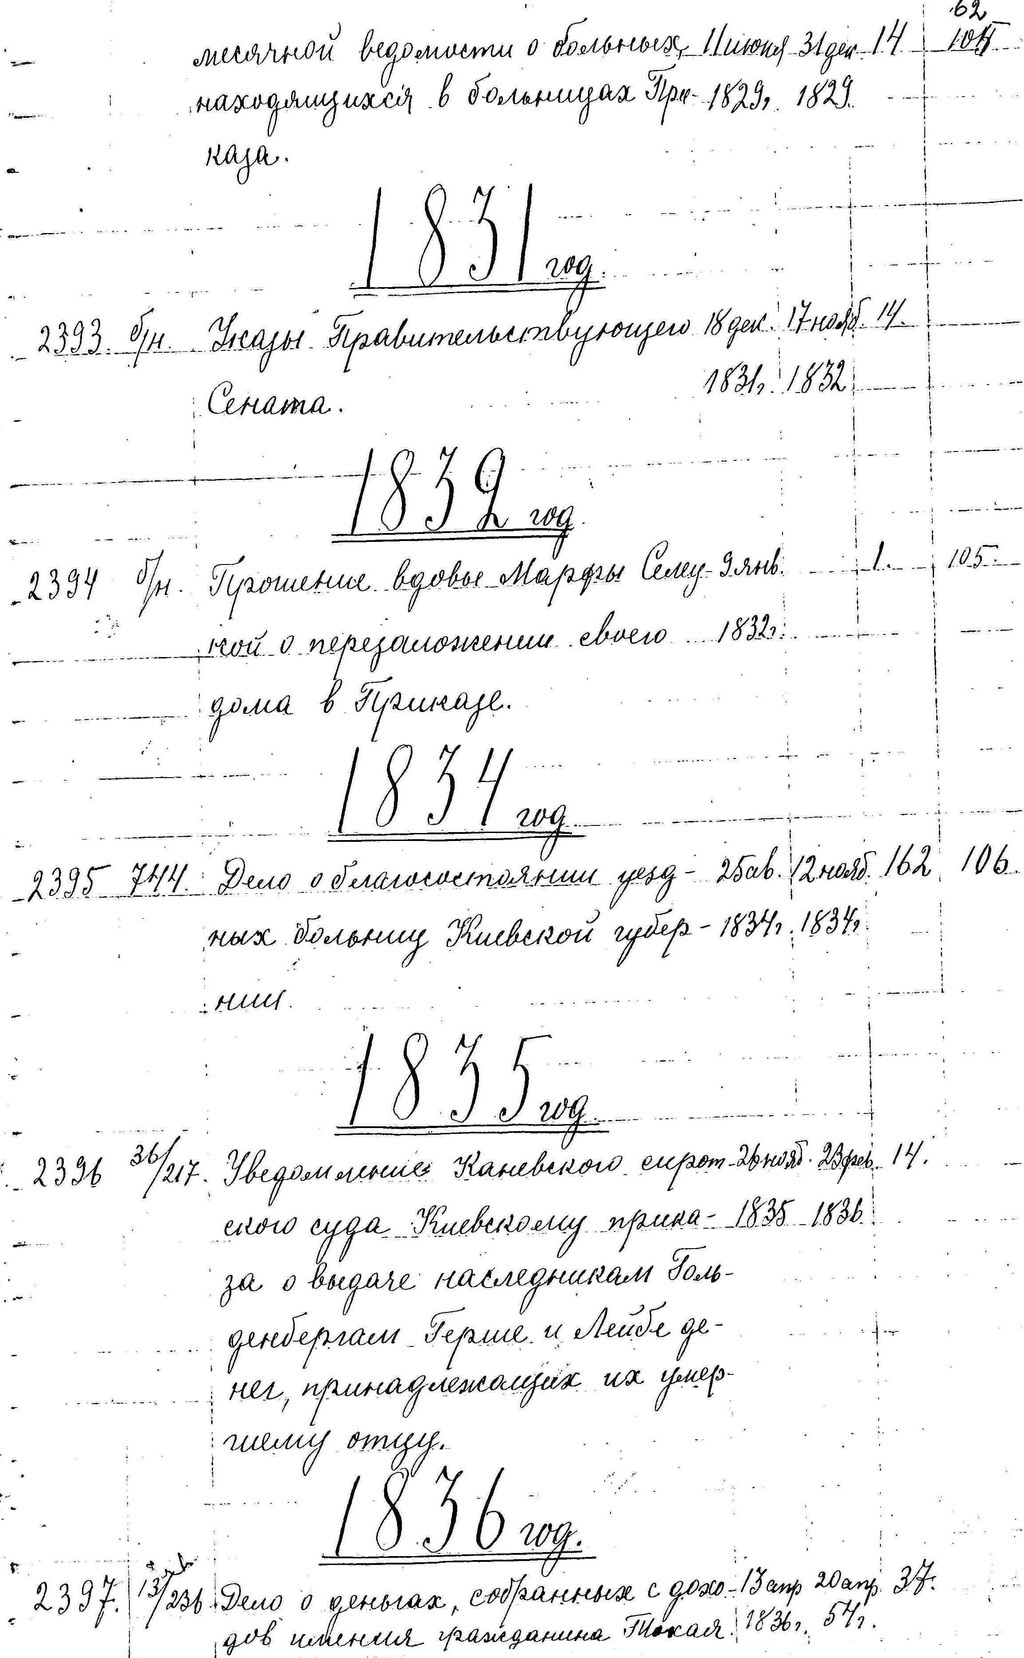 62
месячной ведомости о больных, 11 июня 31 дек. 14
находящихся в больницах При- 1829г. 1829.
каза.
1831 год.
2393. б/н. Указы Правительствующего 18 дек. 17 нояб. 14.
1831г. 1832
Сената.
1832 год.
2394 б/н. Прошение вдовы Марфы Селец- 9 янв. 1. 105.
кой о перезаложении своего 1832г.
дома в Приказе.
1834 год
2395 744. Дело о благосостоянии уезд- 25 ав. 12 нояб. 162 106.
ных больниц Киевской губер- 1834г. 1834г
нии.
1835 год.
2396 36/217. Уведомление Каневского сирот- 26 нояб. 23 фев. 14.
ского суда Киевскому прика- 1835 1836.
за о выдаче наследникам Голь-
денбергам Герше и Лейбе де-
нег, принадлежащих их умер-
шему отцу.
1836 год.
2397. 13/236 Дело о деньгах, собранных с дохо- 13 апр 20 апр. 37.
дов имения гражданина 1836г. 54г.